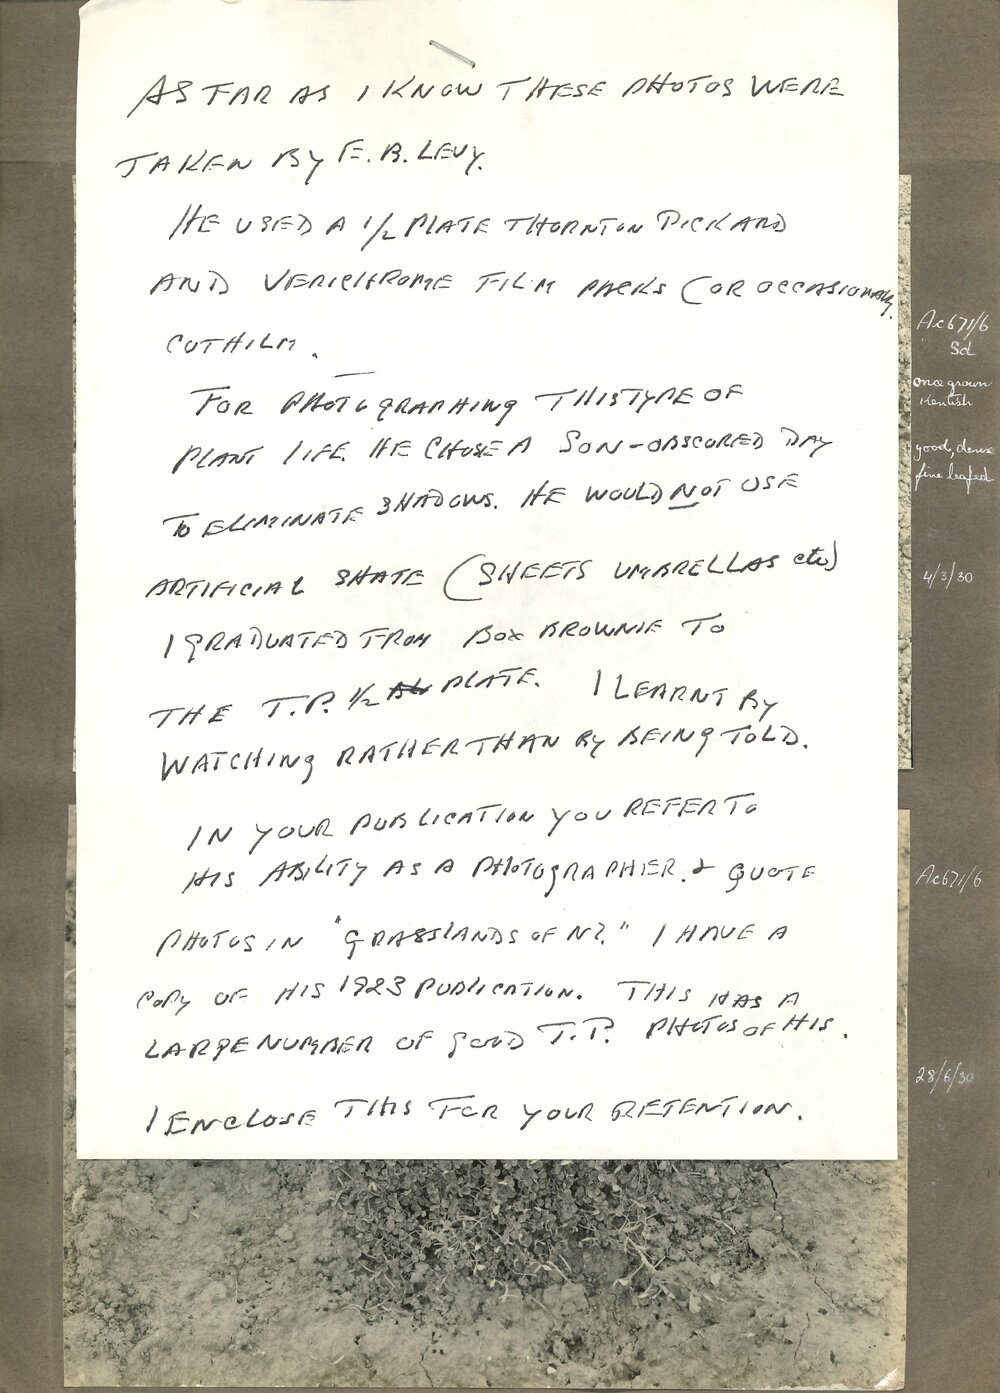 AS FAR AS I KNOW THESE PHOTOS WERE
TAKEN BY E.B. LEVY.
HE USED A 1/2 PLATE THORNTON PICKARD
AND VERICHROME FILM PACKS (OR OCCASIONALLY
CUTFILM.
FOR PHOTOGRAPHING THIS TYPE OF
PLANT LIFE. HE CHOSE A SON-OBSCURED DAY
TO ELIMINATE SHADOWS. HE WOULD NOT USE
ARTIFICIAL SHATE (SHEETS UMBRELLAS etc)
I GRADUATED FROM BOX BROWNIE TO
THE T.P. 1/2 PLATE. I LEARNT BY
WATCHING RATHER THAN BY BEING TOLD.
IN YOUR PUBLICATION YOU REFER TO
HIS ABILITY AS A PHOTOGRAPHER. & QUOTE
PHOTOS IN "GRASSLANDS OF NZ." I HAVE A
COPY OF HIS 1923 PUBLICATION. THIS HAS A
LARGE NUMBER OF GOOD T.P. PHOTOS OF HIS.
I ENCLOSE THIS FOR YOUR RETENTION.
Ac671/6
Sd
once grown
Kentish
good, dense
fine leafed
4/3/30
Ac671/6
28/6/30